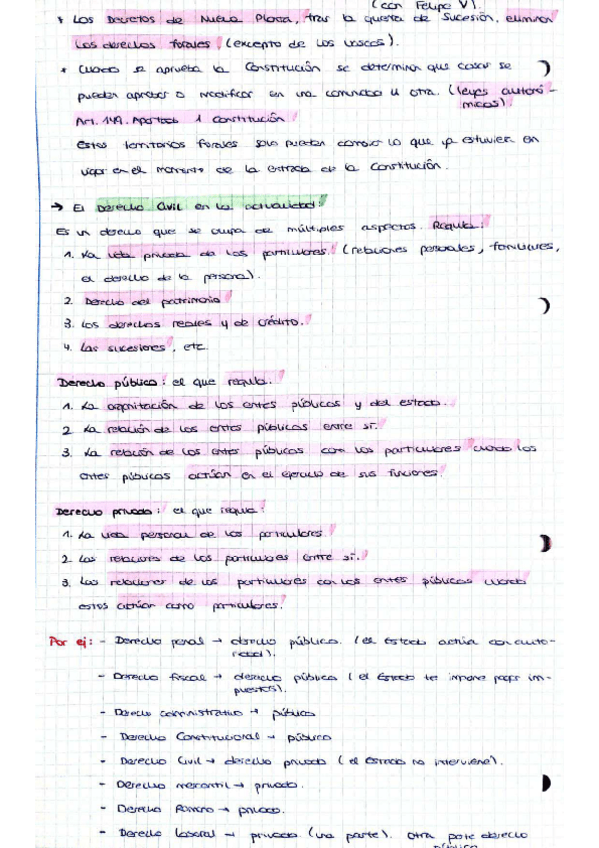 (con Felipe V).
* Los Decretos de Nueva Planta, tras la guerra de Sucesión, eliminan
los derechos forales (excepto de los vascos).
* Cuando se aprueba la Constitución se determina que cosas se
pueden aprobar o modificar en una comunidad u otra. (leyes autonó-
micas)
Art. 149. Apartado 1 Constitución
Estos territorios forales solo pueden cambiar lo que ya estuviera en
vigor en el momento de la entrada de la Constitución.
→ El Derecho Civil en la actualidad:
Es un derecho que se ocupa de múltiples aspectos. Regula:
1. La vida privada de los particulares. (relaciones personales, familiares,
el derecho de la persona).
2. Derecho del patrimonio
3. Los derechos reales y de crédito.
4. Las sucesiones, etc.
Derecho público: el que regula.
1. La organización de los entes públicos y del estado.
2. La relación de los entes públicos entre sí.
3. La relación de los entes públicos con los particulares cuando los
entes públicos actúan en el ejercicio de sus funciones.
Derecho privado: el que regula:
1. La vida personal de los particulares.
2. Las relaciones de los particulares entre sí.
3. Las relaciones de los particulares con los entes públicos cuando
estos actúan como particulares.
Por ej: - Derecho penal → derecho público. (el Estado actúa con auto-
ridad).
- Derecho fiscal → derecho público (el Estado te impone pagar im-
puestos).
- Derecho administrativo → público
- Derecho Constitucional → público
- Derecho Civil → derecho privado (el Estado no interviene).
- Derecho mercantil → privado.
- Derecho Romano → privado.
- Derecho laboral → privado (una parte). Otra parte derecho
público